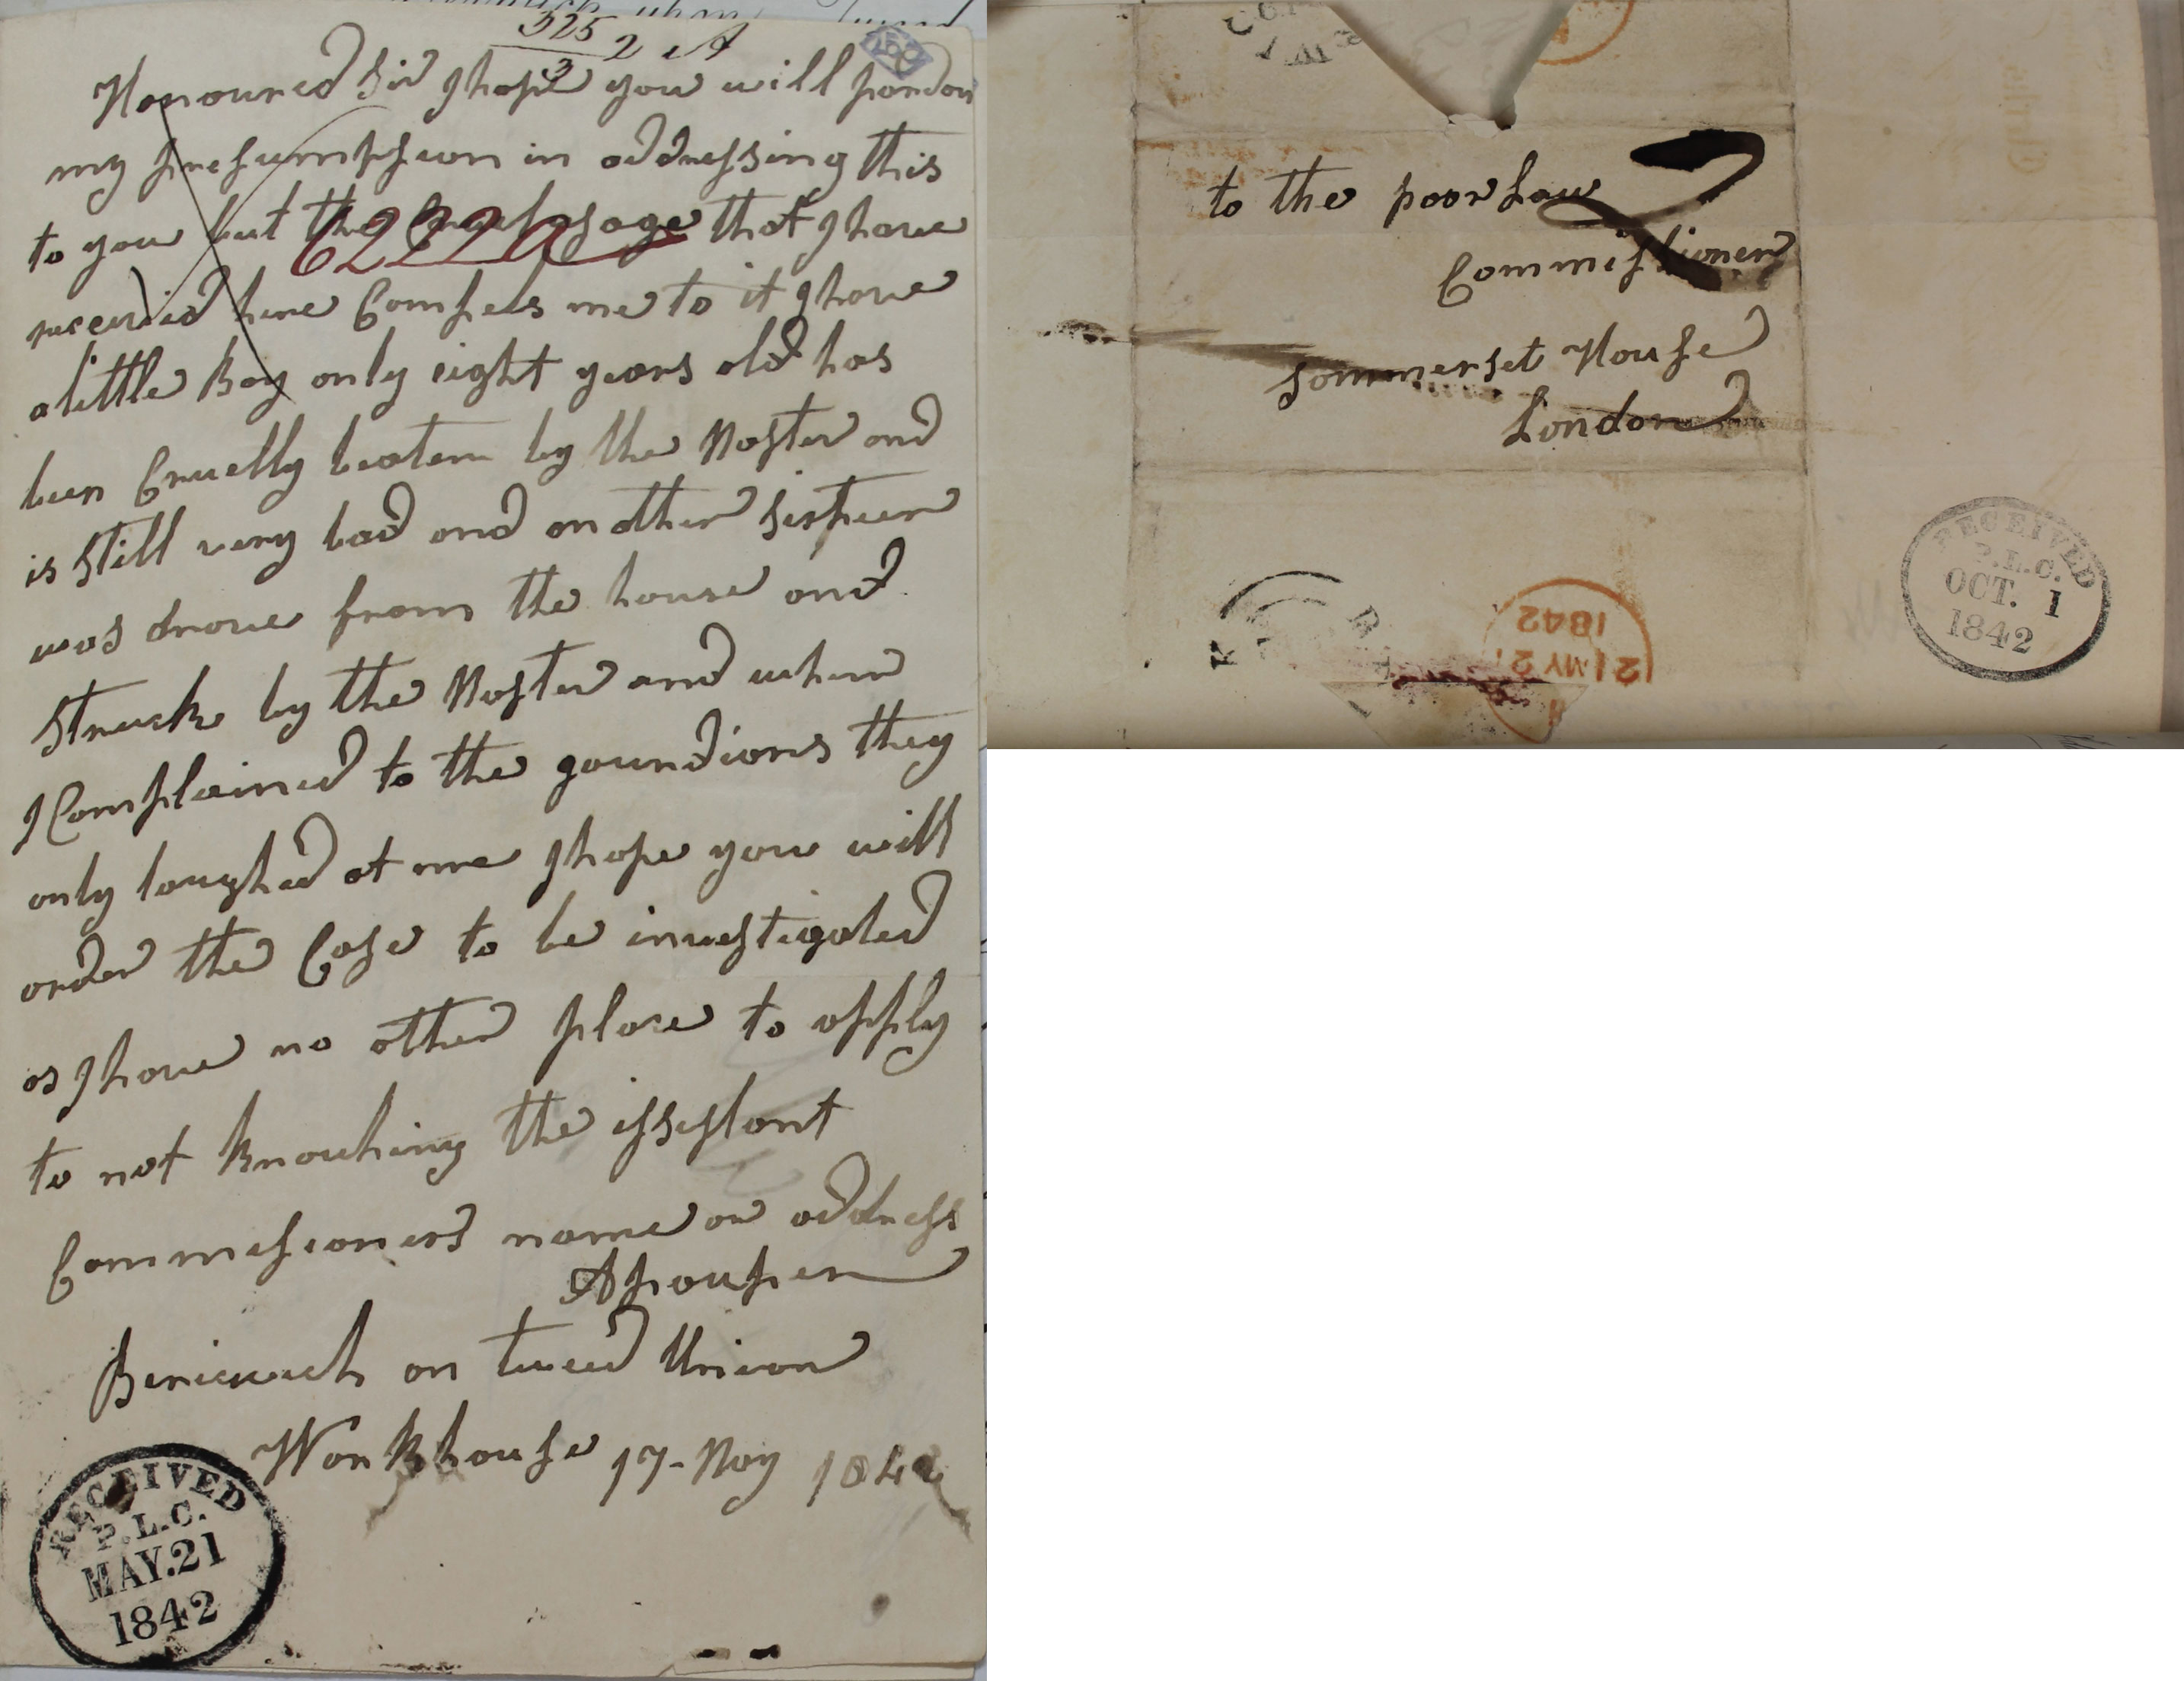 325
3
2 A
Honoured Sir I hope you will pardon
my presumpsion in addressing this
to you but the that I have
6222A
received here Compels me to it I have
a little Boy only eight years old has
been Cruelly beaten by the Master and
is still very bad and another sixteen
was drove from the house and
struck by the Master and when
I Complained to the gaurdians they
only laughed at me I hope you will
order the Case to be investigated
as I have no other place to apply
to not knowhing the issistant
Commesioners name or address
A pauper
Beriwich on tweed Union
Workhouse 17- May 1842
RECEIVED
P.L.C.
MAY.21
1842
to the poor Law
Commissioner
Sommerset House
London
RECEIVED
P.L.C.
OCT. 1
1842
21 MY 21
1842